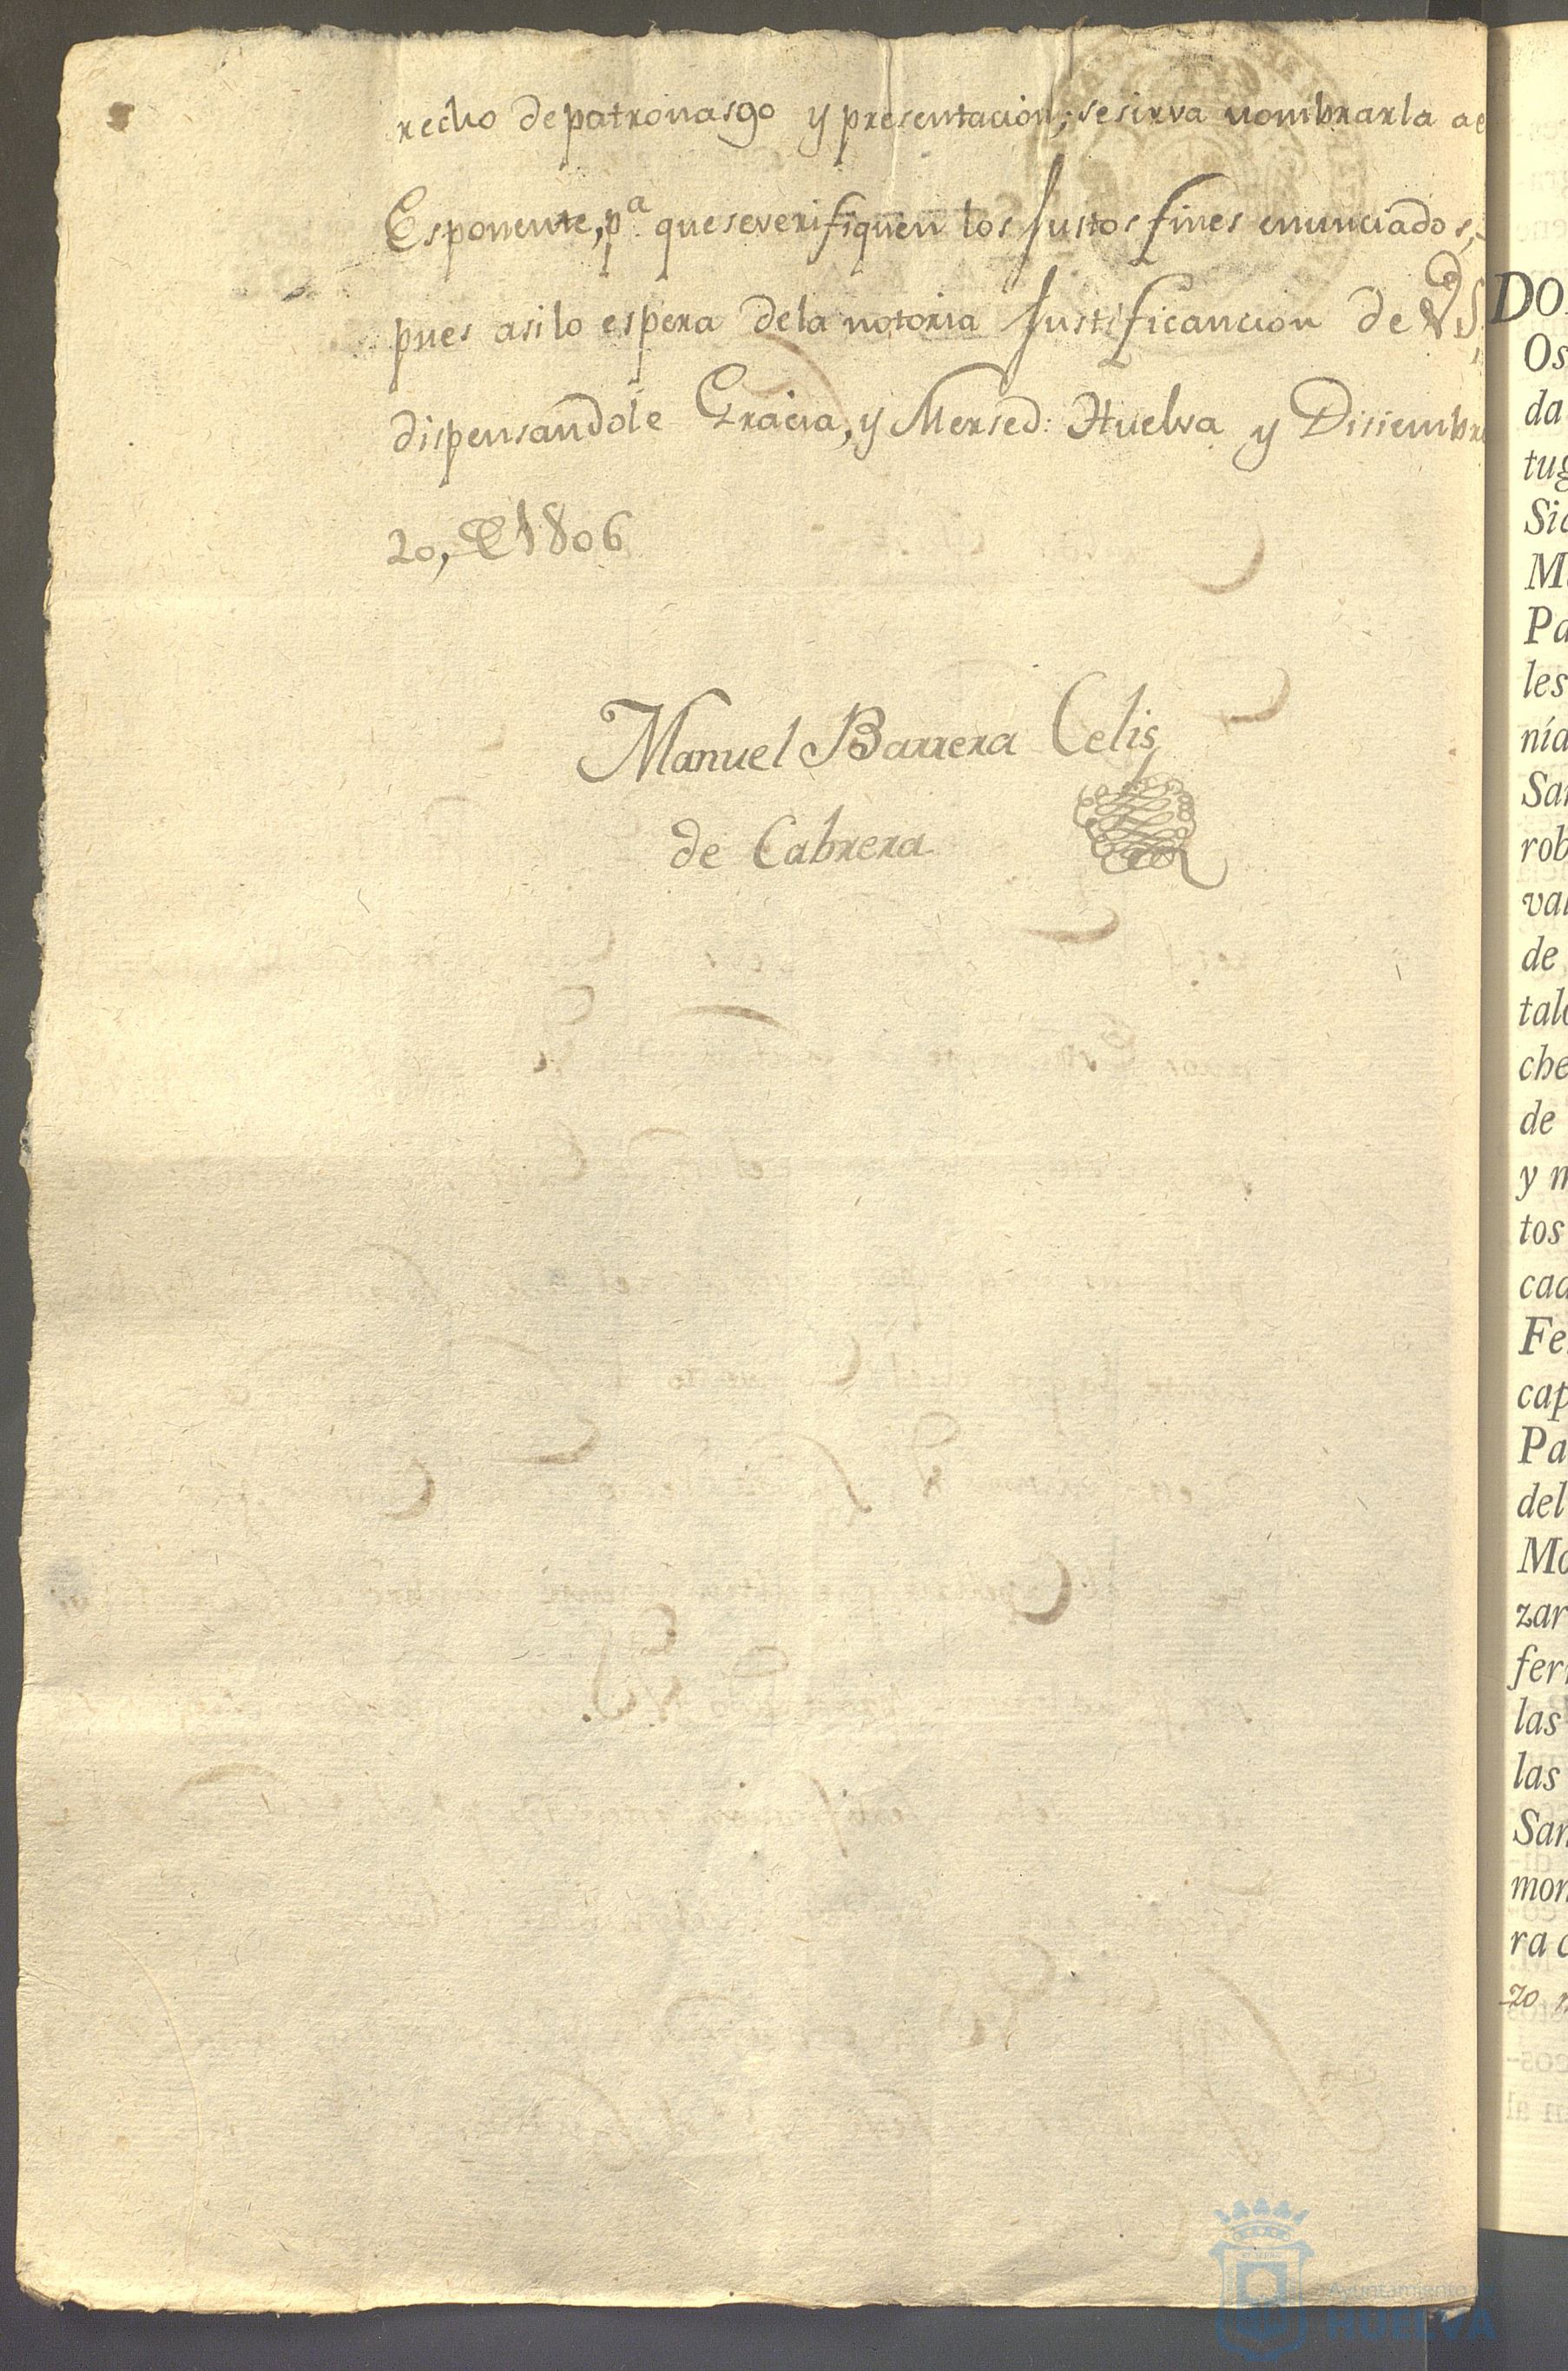 recho de patronasgo y presentacion; se sirva nombrarla ae
Esponente, pª. que se verifiquen los Justos fines enunciados,
pues asi lo espera de la notoria Justificancion de VS,
dispensandole Gracia, y Mersed: Huelva y Disiembre
20, de 1806
Manuel Barrera Celis
de Cabrera
DO
Os
da
tug
Sic
M
Pa
les
nía
Sa
rob
val
de
tale
che
de
y m
tos
cad
Fe
cap
Pa
del
Mo
zar
fer
las
las
San
mon
ra c
zo
Ayuntamiento de
HUELVA